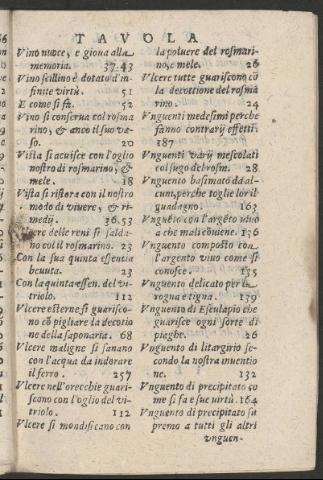 TAVOLA
Vino nuoce, e gioua alla
memoria. 37.43
Vino scillino è dotato d'in-
finite virtù. 51
E come si fa. 52
Vino si conserua col rosma
rino, & anco il suo va-
so. 20
Vista si acuisce con l'oglio
nostro di rosmarino, &
mele. 18
Vista si ristora con il nostro
modo di viuere, & ri-
medij. 36.53
delle reni si salda-
no col il rosmarino. 23
Con la sua quinta essentia
beuuta. 23
Con la quinta essen. del vi-
triolo. 112
Vlcere esterne si guarisco-
no cõ pigliare la decotio
ne della saponaria. 68
Vlcere maligne si sanano
con l'acqua da indorare
il ferro. 257
Vlcere nell'orecchie guari-
scono con l'oglio del vi-
triolo. 112
Vlcere si mondificano con
la poluere del rosmari-
no, e mele. 26
Vlcere tutte guariscono cõ
la decottione del rosma
rino. 24
Vnguenti medesimi perche
fanno contrarij effetti.
187
Vnguenti varij mescolati
col sugo del rosm. 28
Vnguento basimato da al-
cuni, perche toglie lor il
guadagno. 163
Vnguẽto con l'argẽto viuo
a che mali cõuiene. 136
Vnguento composto con
l'argento viuo come si
conosce. 135
Vnguento delicato per la
rogna e tigna. 139
Vnguento di Esculapio che
guarisce ogni sorte di
piaghe. 26
Vnguento di litargirio se-
condo la nostra inuentio
ne. 132
Vnguento di precipitato co
me si fa e sue virtù. 164
Vnguento di precipitato su
premo a tutti gli altri
vnguen-